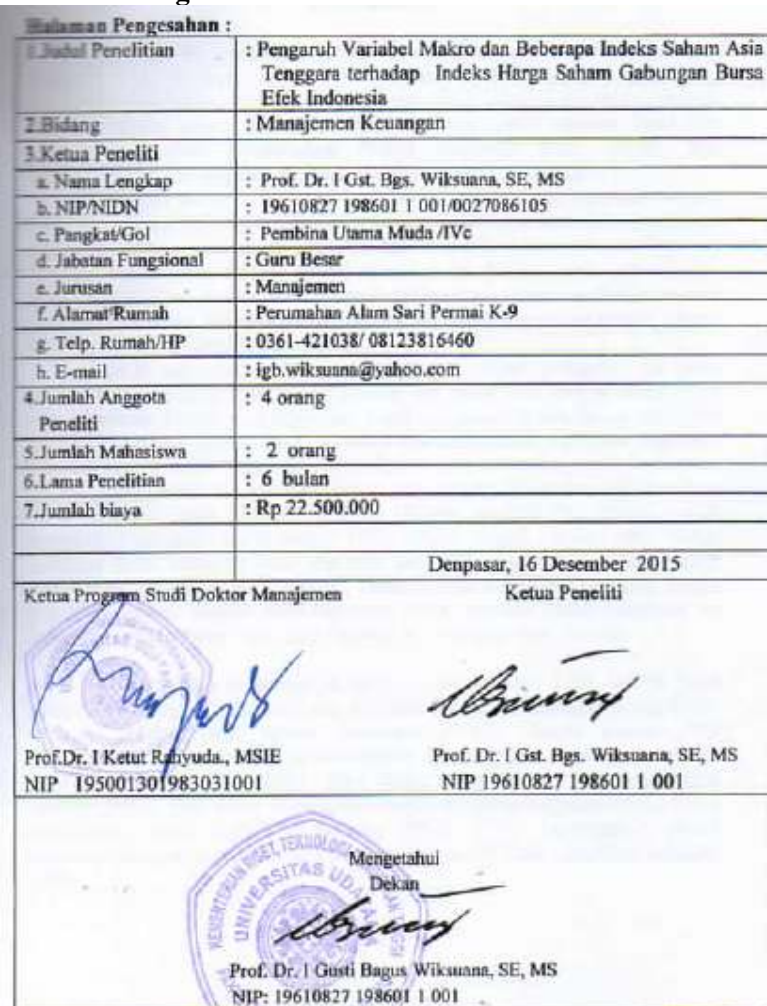 Halaman Pengesahan :
1.Judul Penelitian : Pengaruh Variabel Makro dan Beberapa Indeks Saham Asia
Tenggara terhadap Indeks Harga Saham Gabungan Bursa
Efek Indonesia
2.Bidang : Manajemen Keuangan
3.Ketua Peneliti
a. Nama Lengkap : Prof. Dr. I Gst. Bgs. Wiksuana, SE, MS
b. NIP/NIDN : 19610827 198601 1 001/0027086105
c. Pangkat/Gol : Pembina Utama Muda /IVc
d. Jabatan Fungsional : Guru Besar
e. Jurusan : Manajemen
f. Alamat Rumah : Perumahan Alam Sari Permai K-9
g. Telp. Rumah/HP : 0361-421038/ 08123816460
h. E-mail : igb.wiksuana@yahoo.com
4.Jumlah Anggota : 4 orang
Peneliti
5.Jumlah Mahasiswa : 2 orang
6.Lama Penelitian : 6 bulan
7.Jumlah biaya : Rp 22.500.000
Denpasar, 16 Desember 2015
Ketua Program Studi Doktor Manajemen Ketua Peneliti
Prof.Dr. I Ketut Rahyuda., MSIE Prof. Dr. I Gst. Bgs. Wiksuana, SE, MS
NIP 195001301983031001 NIP 19610827 198601 1 001
Mengetahui
Dekan
KEMENTERIAN RISET, TEKNOLOGI
UNIVERSITAS
Prof. Dr. I Gusti Bagus Wiksuana, SE, MS
NIP: 19610827 198601 1 001